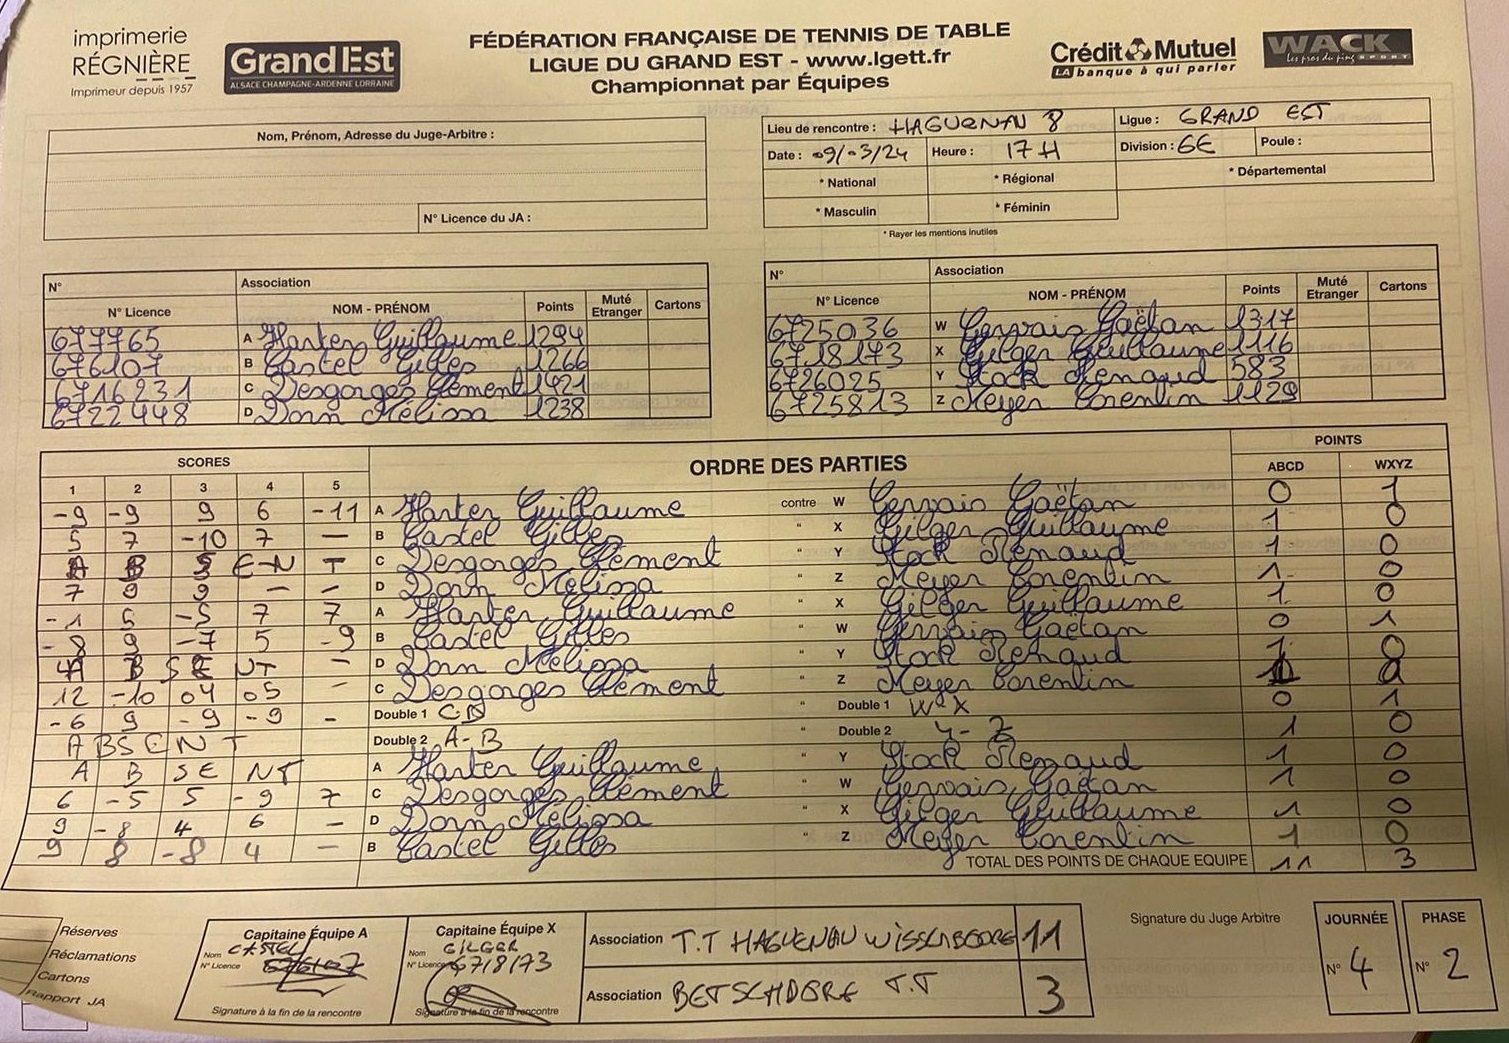 imprimerie
RÉGNIÈRE
Imprimeur depuis 1957
Grand Est
ALSACE CHAMPAGNE-ARDENNE LORRAINE
FÉDÉRATION FRANÇAISE DE TENNIS DE TABLE
LIGUE DU GRAND EST - www.lgett.fr
Championnat par Équipes
Crédit Mutuel
LA banque à qui parler
WACK
Les pros du ping SPORT
Nom, Prénom, Adresse du Juge-Arbitre :
N° Licence du JA :
Lieu de rencontre : HAGUENAU 8 Ligue : GRAND EST
Date : 09/03/24 Heure : 17 H Division : GE Poule :
* National * Régional * Départemental
* Masculin * Féminin
* Rayer les mentions inutiles
N° Association
N° Licence NOM - PRÉNOM Points Muté Etranger Cartons
677765 A Harter Guillaume 1294
676107 B Castel Gilles 1266
6716231 C Desgorges Clément 1421
6722448 D Dorn Mélissa 1238
N° Association
N° Licence NOM - PRÉNOM Points Muté Etranger Cartons
6725036 W Gervais Gaëtan 1317
6718173 X Gilger Guillaume 1116
6726025 Y Stock Renaud 583
6725813 Z Meyer Corentin 1129
SCORES ORDRE DES PARTIES POINTS
1 2 3 4 5 ABCD WXYZ
-9 -9 9 6 -11 A Harter Guillaume contre W Gervais Gaëtan 0 1
5 7 -10 7 — B Castel Gilles " X Gilger Guillaume 1 0
A B S E N T C Desgorges Clément " Y Stock Renaud 1 0
7 9 9 — — D Dorn Mélissa " Z Meyer Corentin 1 0
-1 5 -5 7 7 A Harter Guillaume " X Gilger Guillaume 1 0
-8 9 -7 5 -9 B Castel Gilles " W Gervais Gaëtan 0 1
A B SE NT — D Dorn Mélissa " Y Stock Renaud 1 0
12 -10 04 05 — C Desgorges Clément " Z Meyer Corentin 1 0
-6 9 -9 -9 - Double 1 CD " Double 1 W X 0 1
A B S E N T Double 2 A-B " Double 2 Y-Z 1 0
A B SE NT A Harter Guillaume " Y Stock Renaud 1 0
6 -5 5 -9 7 C Desgorges Clément " W Gervais Gaëtan 1 0
9 -8 4 6 — D Dorn Mélissa " X Gilger Guillaume 1 0
9 8 -8 4 — B Castel Gilles " Z Meyer Corentin 1 0
TOTAL DES POINTS DE CHAQUE EQUIPE 11 3
Réserves
Réclamations
Cartons
Rapport JA
Capitaine Équipe A
Nom CASTEL
N° Licence 676107
Signature à la fin de la rencontre
Capitaine Équipe X
Nom GILGER
N° Licence 6718173
Signature à la fin de la rencontre
Association T.T HAGUENAU WISSEMBOURG 11
Association BETSCHDORF T.T 3
Signature du Juge Arbitre
JOURNÉE
N° 4
PHASE
N° 2